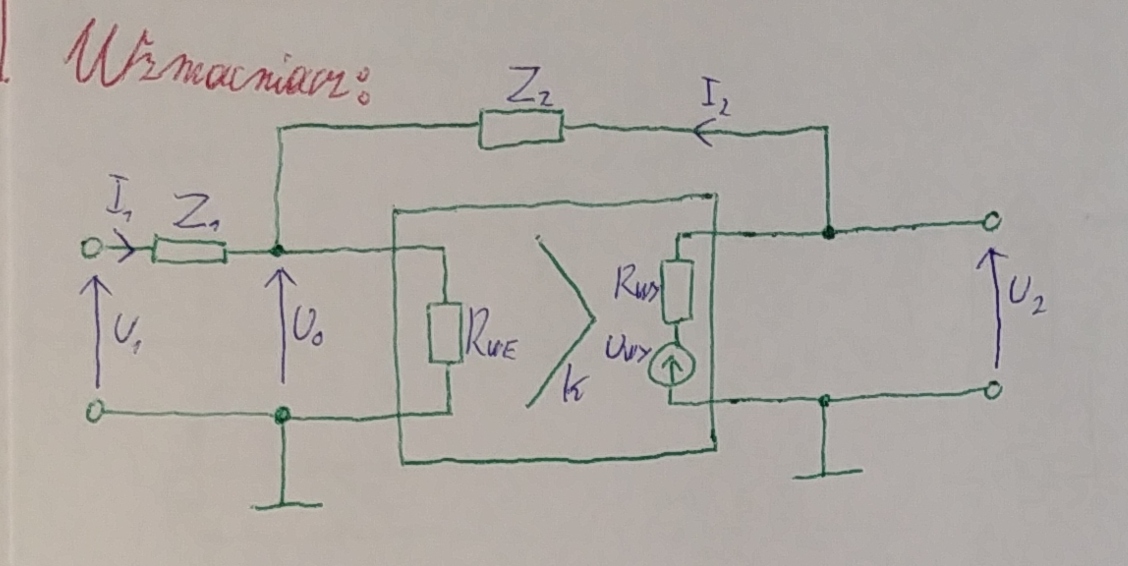 Wzmacniacz:
Z₂
I₂
I₁
Z₁
U₁
U₀
R_WE
k
R_WY
U_WY
U₂